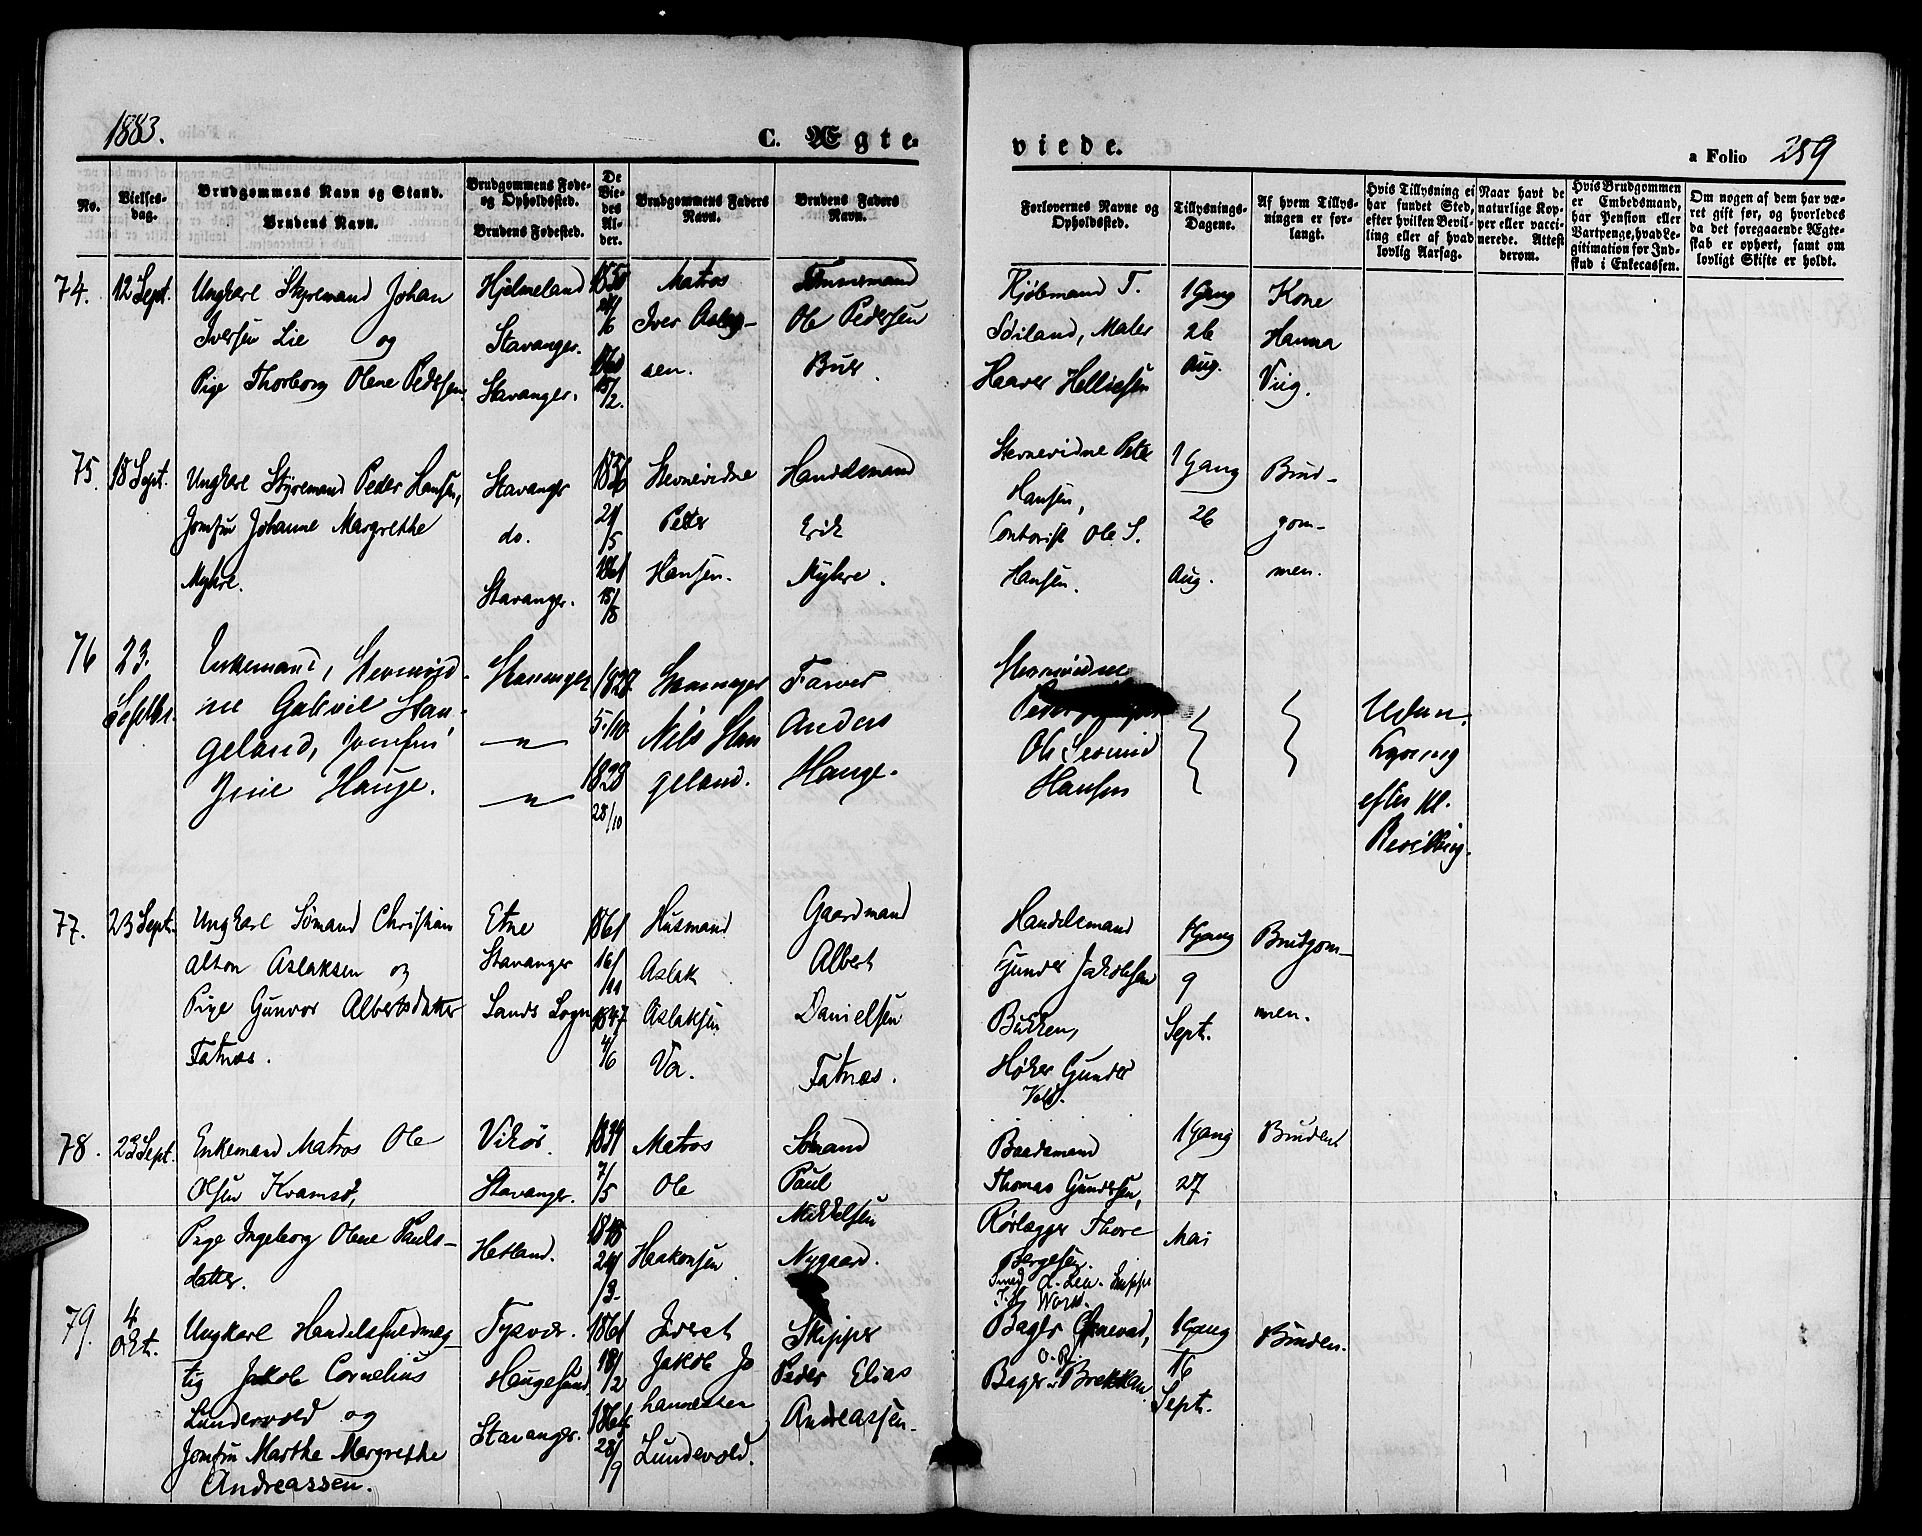 1883.
C. Ægte-
viede.
a Folio 259
No.
Vielses-
dag.
Brudgommens Navn og Stand.
Brudens Navn.
Brudgommens Føde-
og Opholdssted.
Brudens Fødested.
De
Vie-
des
Al-
der.
Brudgommens Faders
Navn.
Brudens Faders
Navn.
Forlovernes Navne og
Opholdssted.
Tillysnings-
Dagene.
Af hvem Tillys-
ningen er for-
langt.
Hvis Tillysning ei
har fundet Sted,
efter hvilken Bevil-
ling eller af hvad
lovlig Aarsag.
Naar havt de
naturlige Kop-
per eller vacci-
nerede. Attest
derom.
Hvis Brudgommen
er Embedsmand,
har Pension eller
Vartpenge, hvad Le-
gitimation for Ind-
skud i Enkecassen.
Om nogen af dem har væ-
ret gift før, og hvorledes
da det foregaaende Ægte-
skab er ophørt, samt om
lovligt Skifte er holdt.
74.
12 Sept.
Ungkarl Styremand Johan
Iversen Lie og
Pige Thorborg Olene Pedersen
Hjelmeland
Stavanger.
Stavanger.
1850
1860
15/2.
Matros
Iver Aslag-
sen.
Tømmermand
Ole Pedersen
Buer
Kjøbmand T.
Søiland, Maler
Haaver Helliesen
1 Gang
26
Aug.
Kone
Hanna
Viig.
75.
18 Sept.
Ungkarl Styremand Peder Hansen,
Jomfru Johanne Margrethe
Mykre.
Stavanger
do.
Stavanger.
1856
21/5
1861
15/8
Stevnevidne
Peter
Hansen.
Handelsmand
Erik
Mykre.
Stevnevidne Peter
Hansen,
Contorist Ole S.
Hansen.
1 Gang
26
Aug.
Brud-
gom-
men.
76
23.
Septbr.
Enkemand, Stevnevid-
ne Gabriel Stan-
geland, Jomfru
Hauge.
Stavanger
— " —
— " —
1828
5/10
1828
28/10
Nils Stan
geland.
Farver
Anders
Hauge.
Stevnevidne
Ole Severin
Hansen
Uden
Lysning
efter kl.
Bevilling.
77.
23 Sept.
Ungkarl Sømand Christian
Alton Aslaksen og
Pige Gunvor Albertsdatter
Fatnæs.
Etne
Stavanger
Sands Sogn
1861
16/11
1847
4/6
Husmand
Aslak
Aslaksen
Va.
Gaardmand
Albert
Danielsen
Fatnæs.
Handelsmand
Gunder Jakobsen
Bukken,
Høker Gunder
Vold.
1 Gang
9
Sept.
Brudgom-
men.
78.
23 Sept.
Enkemand Matros Ole
Olsen Kvamsø,
Pige Ingeborg Olene Pauls-
datter.
Vikør.
Stavanger.
Hetland.
1839
7/5
1848
24/3.
Matros
Ole
Haakonsen
Sømand
Paul
Mikkelsen
Nygaard.
Baadsmand
Thomas Gundersen,
Rørlægger Thore
Børgesen.
1 Gang
27
Mai
Bruden
79.
4
Okt.
Ungkarl Handelsfuldmæg-
tig Jakob Cornelius
Lundevold og
Jomfru Marthe Margrethe
Andreassen.
Tysvær.
Haugesund
Stavanger.
1861
18/2
1864
28/9
Jakob Jo
hannessen
Lundevold.
Skipper
Peder Elias
Andreassen.
Bager
Bager Brekkan
1 Gang
16
Sept.
Bruden.